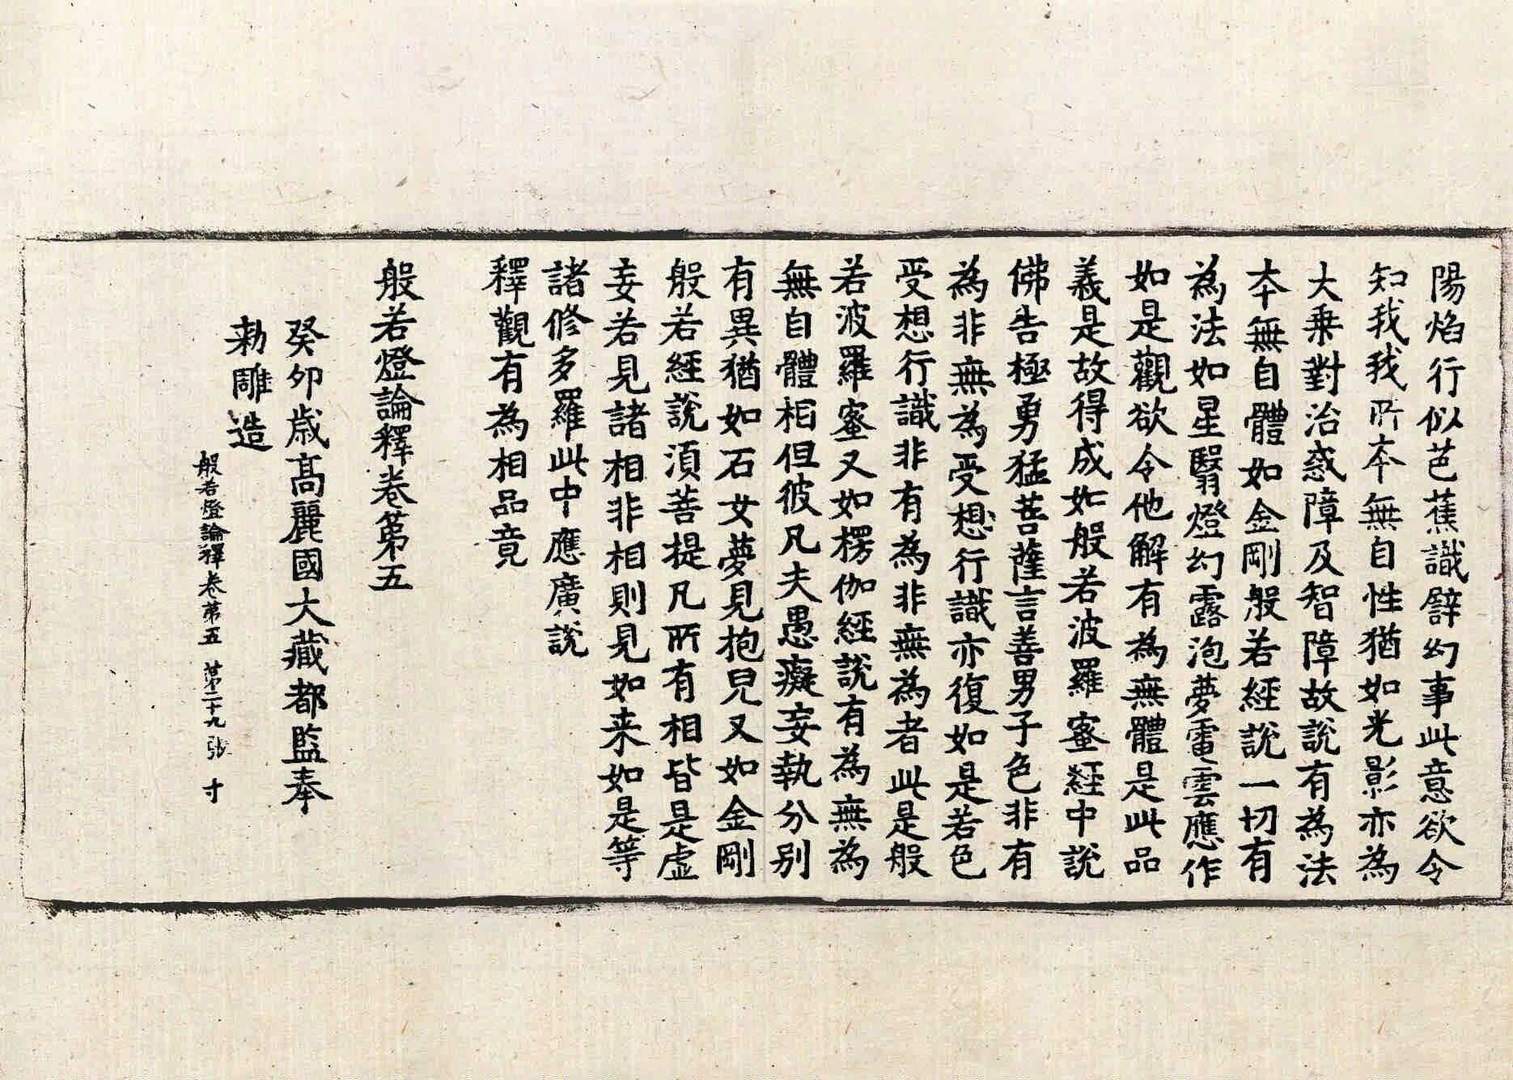 陽焰行似芭蕉識譬幻事此意欲令
知我我所本無自性猶如光影亦為
大乗對治惑障及智障故說有為法
本無自體如金剛般若經說一切有
為法如星翳燈幻露泡夢電雲應作
如是觀欲令他解有為無體是此品
義是故得成如般若波羅蜜經中說
佛告極勇猛菩薩言善男子色非有
為非無為受想行識亦復如是若色
受想行識非有為非無為者此是般
若波羅蜜又如楞伽經說有為無為
無自體相但彼凡夫愚癡妄執分別
有異猶如石女夢見抱兒又如金剛
般若經說湏菩提凡所有相皆是虛
妄若見諸相非相則見如来如是等
諸修多羅此中應廣說
釋觀有為相品竟
般若燈論釋卷第五
癸卯歳高麗國大藏都監奉
勅雕造
般若燈論釋卷第五 第二十九張 寸